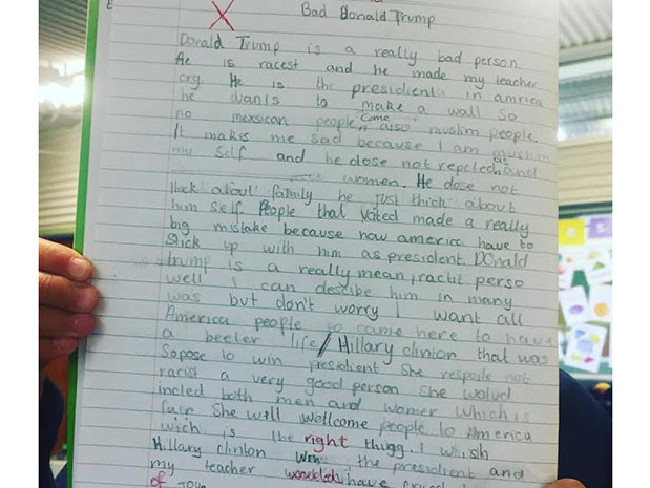 E
Bad Donald Trump
Donald Trump is a really bad person.
He is racest and he made my teacher
cry. He is the presidienta in amrica
he wants to make a wall so
no mexsican people come also muslim people.
It makes me sad because I am muslim
my self and he dose not as and
women. He dose not
thick about family he just thick about
him self. People that voted made a really
big mistake because now america have to
stick up with him as president. Donald
trump is a really mean, ractit perso
well I can describe him in many
was but don't worry I want all
America people to came here to have
a beeter life/Hillary clinton that was
Sopose to win president She not
racist a very good person She
incled both men and women which is
fair She will wellcome people to America
wich is the right thing. I whish
Hillary clinton the presidient and
my teacher have
of